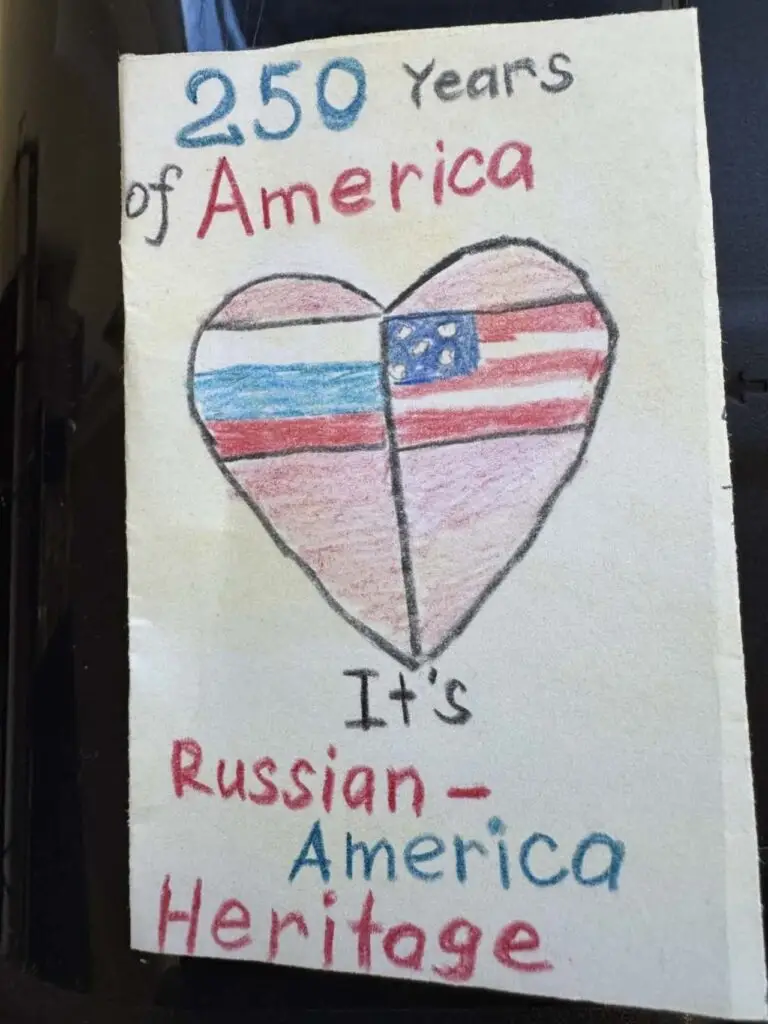 250 Years
of America
It's
Russian -
America
Heritage